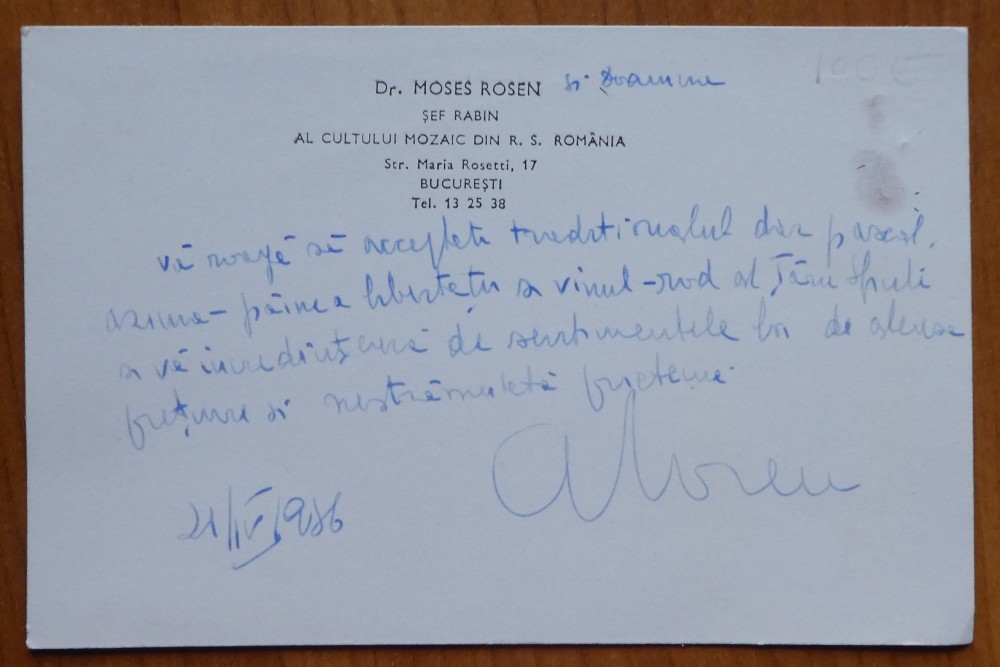 Dr. MOSES ROSEN și Doamna
ȘEF RABIN
AL CULTULUI MOZAIC DIN R. S. ROMÂNIA
Str. Maria Rosetti, 17
BUCUREȘTI
Tel. 13 25 38
vă roagă să acceptați tradiționalul dar pascal,
azima - pâinea libertății și vinul - rod al Țării Sfinte
și vă încredințează de sentimentele lor de aleasă
prețuire și nestrămutată prietenie.
21/IV/1986
100 €